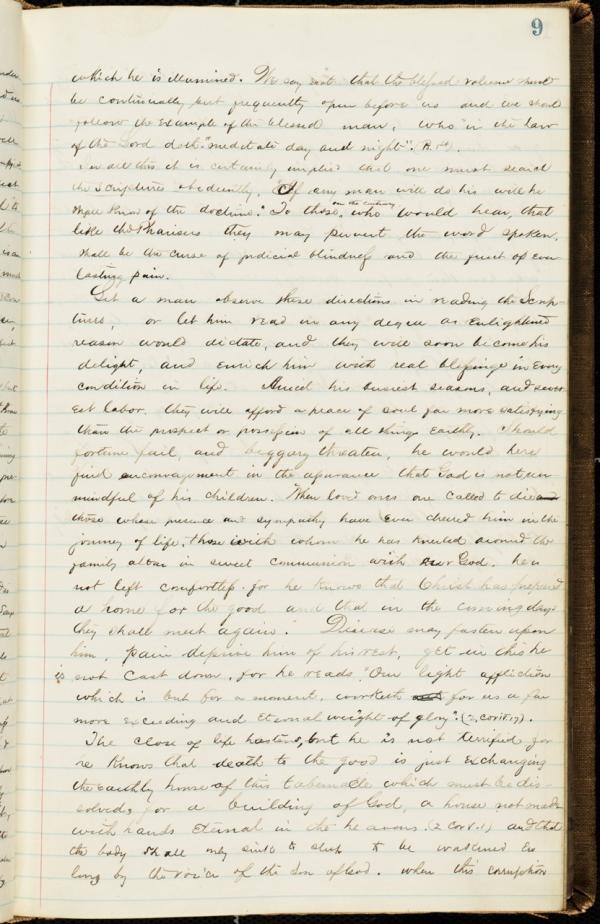 9
which he is illumined. We say not that the blessed volume must
be continually but frequently open before us and we shall
follow the example of the blessed man, who "in the law
of the Lord doth "meditate day and night".
In all this it is certainly implied that one must search
the Scriptures obediently. If any man will do his will he
shall know of the doctrine." To those, on the contrary who would hear, that
like the Pharisees they may pervert the word spoken,
shall be the curse of judicial blindness and the fruit of ever
lasting pain.
Let a man observe these directions in reading the Scrip-
tures, or let him read in any degree as enlightened
reason would dictate, and they will soon become his
delight, and enrich him with real blessings in every
condition in life. Amid his busiest seasons, and sever
est labor, they will afford a peace of soul far more satisfying
than the prospect or possession of all things earthly. Should
fortune fail, and beggary threaten, he would here
find encouragement in the assurance that God is not un
mindful of his children. When loved ones are called to die
those whose presence and sympathy have ever cheered him in the
journey of life, those with whom he has kneeled around the
family altar in sweet communion with God. he is
not left comfortless. for he knows that Christ has prepared
a home for the good and that in the coming days
they shall meet again. Disease may fasten upon
him, pain deprive him of his rest, yet in this he
is not cast down, for he reads, "Our light affliction
which is but for a moment, worketh for us a far
more exceeding and eternal weight of glory." (2, cor IV 17).
The close of life hastens, but he is not terrified for
he knows that death to the good is just exchanging
the earthly house of this tabernacle which must be dis-
solved, for a building of God, a house not made
with hands eternal in the heavens. (2 Cor V.1) and that
the body shall only sink to sleep to be wakened ere
long by the voice of the Son of God. when this corruption